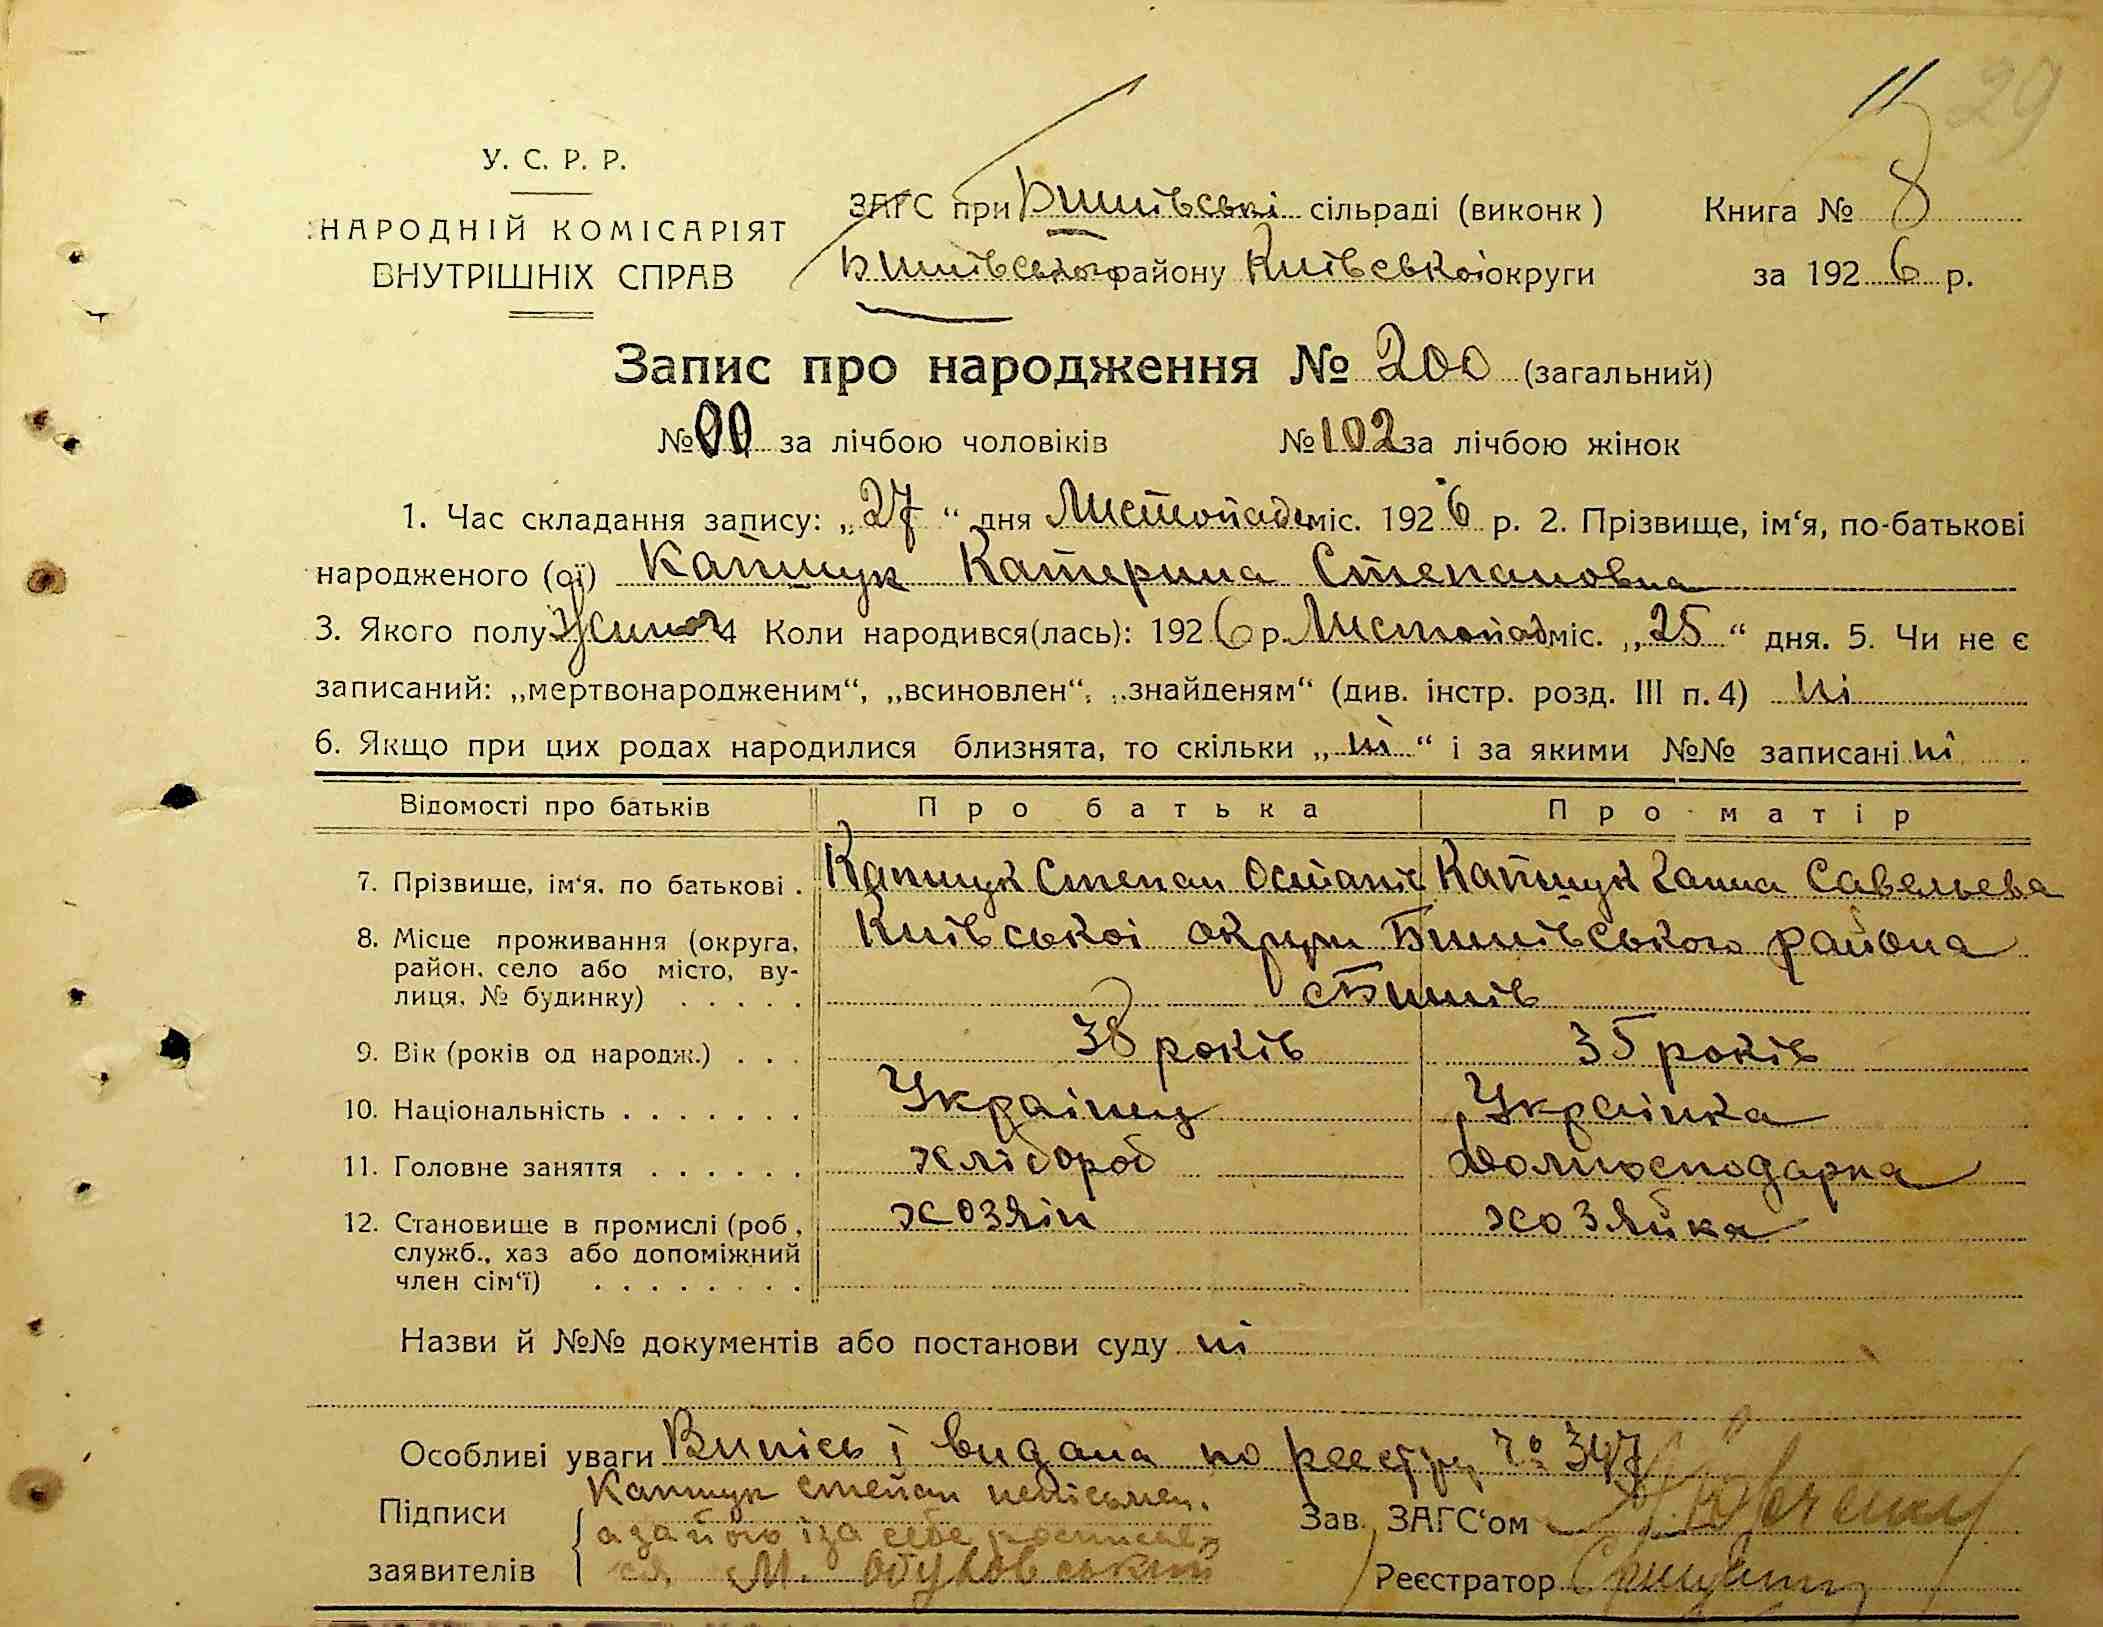 29
У. С. Р. Р.
НАРОДНІЙ КОМІСАРІЯТ
ВНУТРІШНІХ СПРАВ
ЗАГС при Бишівські сільраді (виконк)
Книга № 8
Бишівського району Київськоі округи
за 1926 р.
Запис про народження № 200 (загальний)
№ 00 за лічбою чоловіків № 102 за лічбою жінок
1. Час складання запису: „27“ дня Листопада міс. 1926 р. 2. Прізвище, ім‘я, по-батькові
народженого (ої) Капшук Катерина Степановна
3. Якого полу Жиноч 4 Коли народився(лась): 1926 р. Листопад міс. „25“ дня. 5. Чи не є
записаний: „мертвонародженим“, „всиновлен“, „знайденям“ (див. інстр. розд. III п. 4) ні
6. Якщо при цих родах народилися близнята, то скільки „ні“ і за якими №№ записані ні
Відомості про батьків Про батька Про матір
7. Прізвище, ім‘я, по батькові . Капшук Степан Остапів Капшук Ганна Савельева
8. Місце проживання (округа, Київськоі округи Бишівського района
район, село або місто, ву-
лиця, № будинку) . . . . . с Бишів
9. Вік (років од народж.) . . . 38 років 35 років
10. Національність . . . . . . . Украінец Украінка
11. Головне заняття . . . . . . хлібороб Домгосподарка
12. Становище в промислі (роб., хозяін хозяйка
служб., хаз або допоміжний
член сім‘ї) . . . . . . . .
Назви й №№ документів або постанови суду ні
Особливі уваги Випісь і видана по реестру № 347
Підписи
заявителів
Капшук степан неписьмен.
а за його і за себе росписав
ся М. Обуховський
Зав. ЗАГС‘ом
Реєстратор